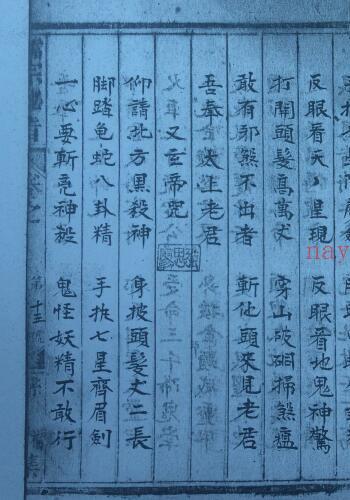 反眼看天丶星現　反眼看地鬼神驚
打開頭髮高萬丈　穿山破硐掃煞瘟
敢有邪煞不出者　斬他頭來見老君
吾奉太上老君
又玄帝咒
仰請北方黑殺神　身披頭髮丈二長
脚踏龟蛇八卦精　手执七星齊眉劍
一心要斬神殺　鬼怪妖精不敢行
第十五
nay